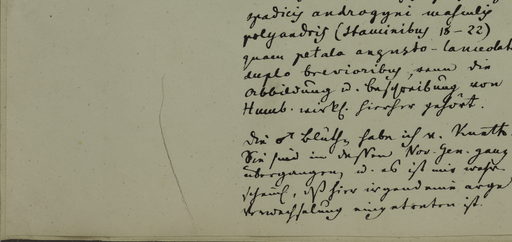 spadicis androgyni masculis
polyandris (staminibus 18-22)
quam petala angusto-lanceolat
duplo brevioribus, wenn die
Abbildung u. Beschreibung von
Humb. wirkl. hierher gehört.
Die ♂ Blüth. habe ich v. Kunth.
Sie sind in dessen Nov. Gen. ganz
übergangen, u. es ist mir wahr-
scheinl., daß hier irgend eine arge
Verwechselung eingetreten ist.